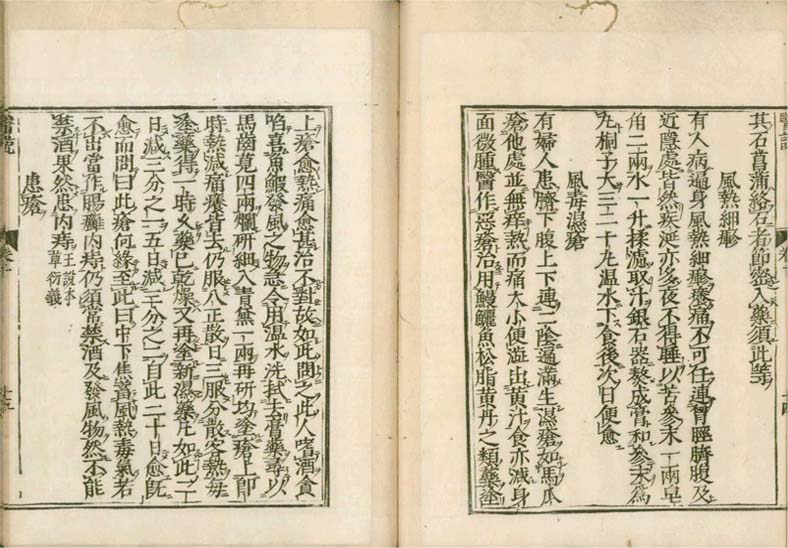 其石菖蒲絡石者節密入藥須此等
風熱細瘮
有人病遍身風熱細瘮癢痛不可任連胷脛臍腹及
近隱處皆然痰涎亦多夜不得睡以苦參末一兩皁
角二兩水一升揉濾取汁銀石器熬成膏和參末爲
丸桐子大三二十丸溫水下食後次日便愈
風毒濕瘡
有婦人患臍下腹上下連二陰遍滿生濕瘡如馬瓜
瘡他處並無痒熱而痛大小便澁出黃汁食亦減身
面微腫醫作惡瘡治用鰻鱺魚松脂黃丹之類藥塗
上瘡愈熱痛愈甚治不對故如此問之此人嗜酒貪
啗喜魚蝦發風之物急令用溫水洗拭去膏藥尋以
馬齒莧四兩爛研細入靑黛一兩再研均塗瘡上卽
時熱減痛癢皆去仍服八正散日三服分散客熱每
塗藥得一時久藥已乾燥又再塗新濕藥凡如此二
日減三分之一五日減三分之二自此二十日愈旣
愈而問曰此瘡何緣至此曰中下焦蓄風熱毒氣若
不出當作腸癰內痔仍須常禁酒及發風物然不能
禁酒果然患內痔 王設本
草衍義
患瘡
醫說